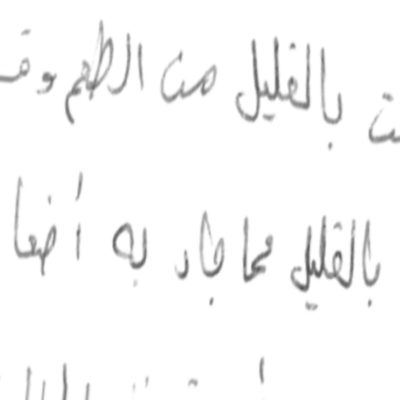 بالقليل من الطعم وق
بالقليل مما جاد به أضعا